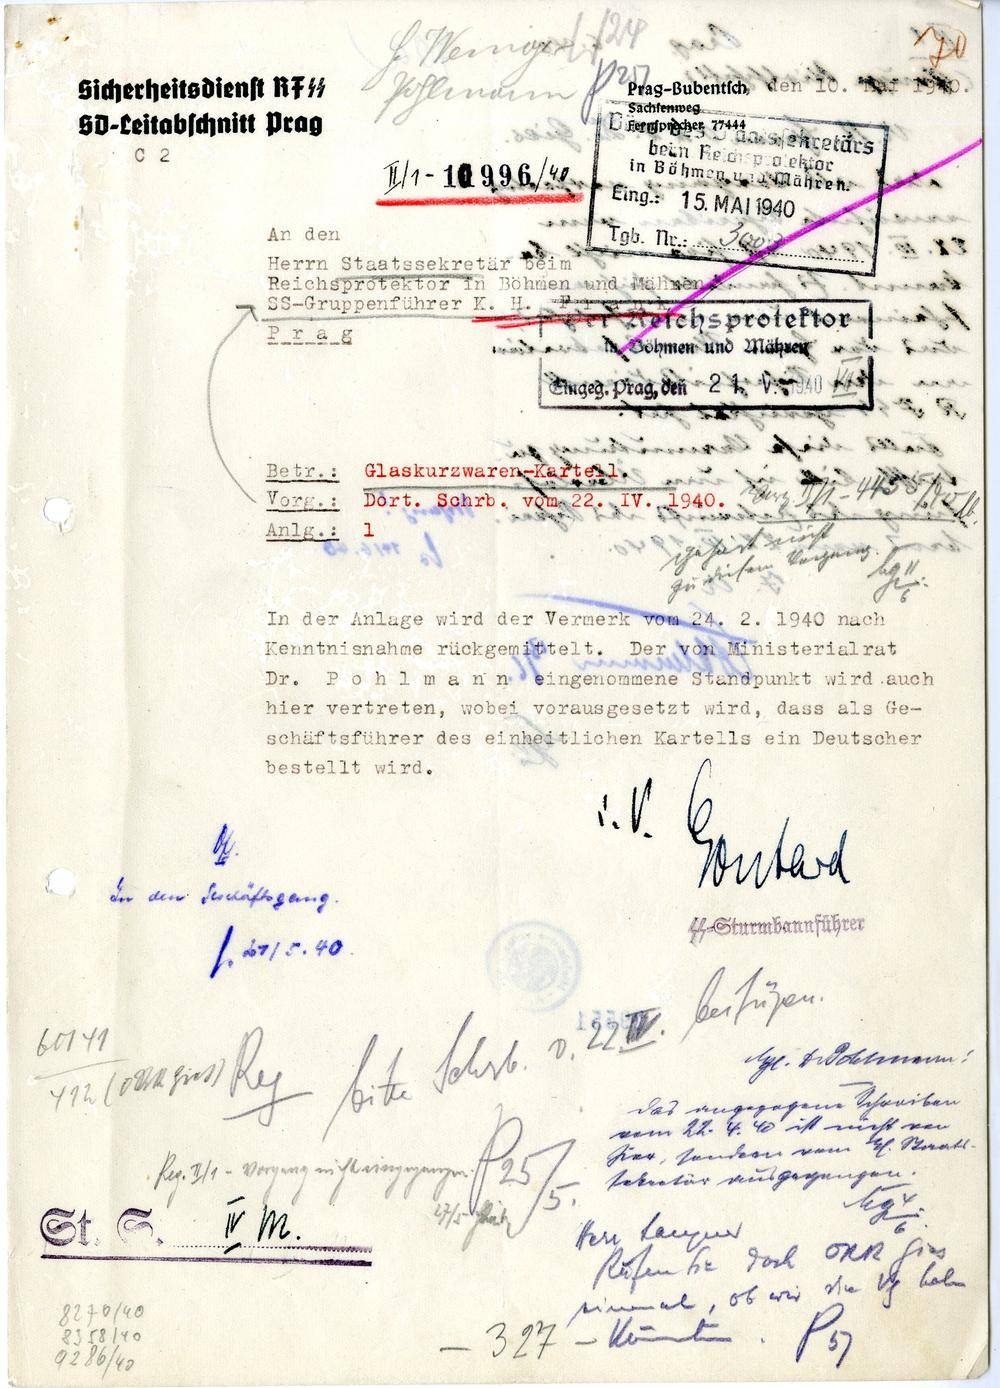 70
Sicherheitsdienst RFSS
SD-Leitabschnitt Prag
C 2
Prag-Bubentsch, den 10. Mai 1940.
Sachsenweg
Fernsprecher 77444
Büro des Staatssekretärs
beim Reichsprotektor
in Böhmen und Mähren.
Eing.: 15. MAI 1940
Tgb. Nr.:
II/1 - 10996/40
An den
Herrn Staatssekretär beim
Reichsprotektor in Böhmen und Mähren
SS-Gruppenführer K. H. Frank
Prag
Der Reichsprotektor
in Böhmen und Mähren
Eingeg. Prag, den 21. V. 1940 VI
Betr.: Glaskurzwaren-Kartell.
Vorg.: Dort. Schrb. vom 22. IV. 1940.
Anlg.: 1
gehört nicht
zu diesem Vorgang.
In der Anlage wird der Vermerk vom 24. 2. 1940 nach
Kenntnisnahme rückgemittelt. Der von Ministerialrat
Dr. Pohlmann eingenommene Standpunkt wird auch
hier vertreten, wobei vorausgesetzt wird, dass als Ge-
schäftsführer des einheitlichen Kartells ein Deutscher
bestellt wird.
i. V. Gontard
SS-Sturmbannführer
In den Geschäftsgang.
21/5.40.
60141
412 (ORR Gies)
Reg bitte Schrb. v. 22. IV. beifügen.
P 25/5.
Reg. II/1 - Vorgang nicht eingegangen.
27/5
Das angegebene Schreiben
vom 22. 4. 40 ist nicht von
hier, sondern vom H. Staats-
sekretär ausgegangen.
St. S. IV M.
Herr
Rufen Sie doch ORR Gies
einmal, ob wir die Vg haben
könnten. P 5/
8270/40
8358/40
9286/40
- 327 -